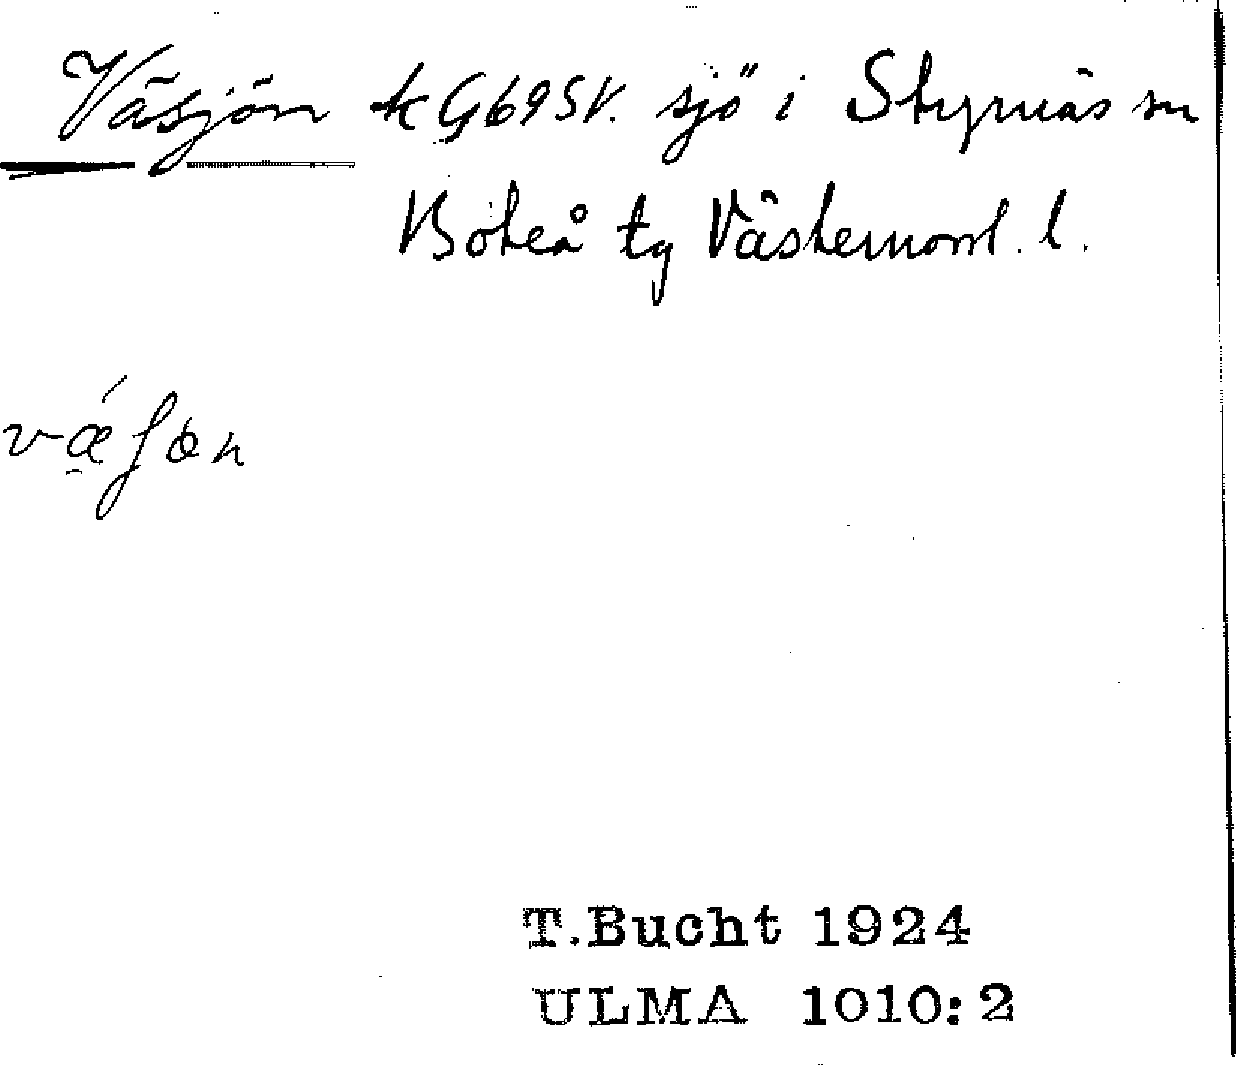 Väsjön k G69SV. sjö i Styrnäs sn
Boteå tg Västernorrl. l.
T.Bucht 1924
ULMA 1010:2